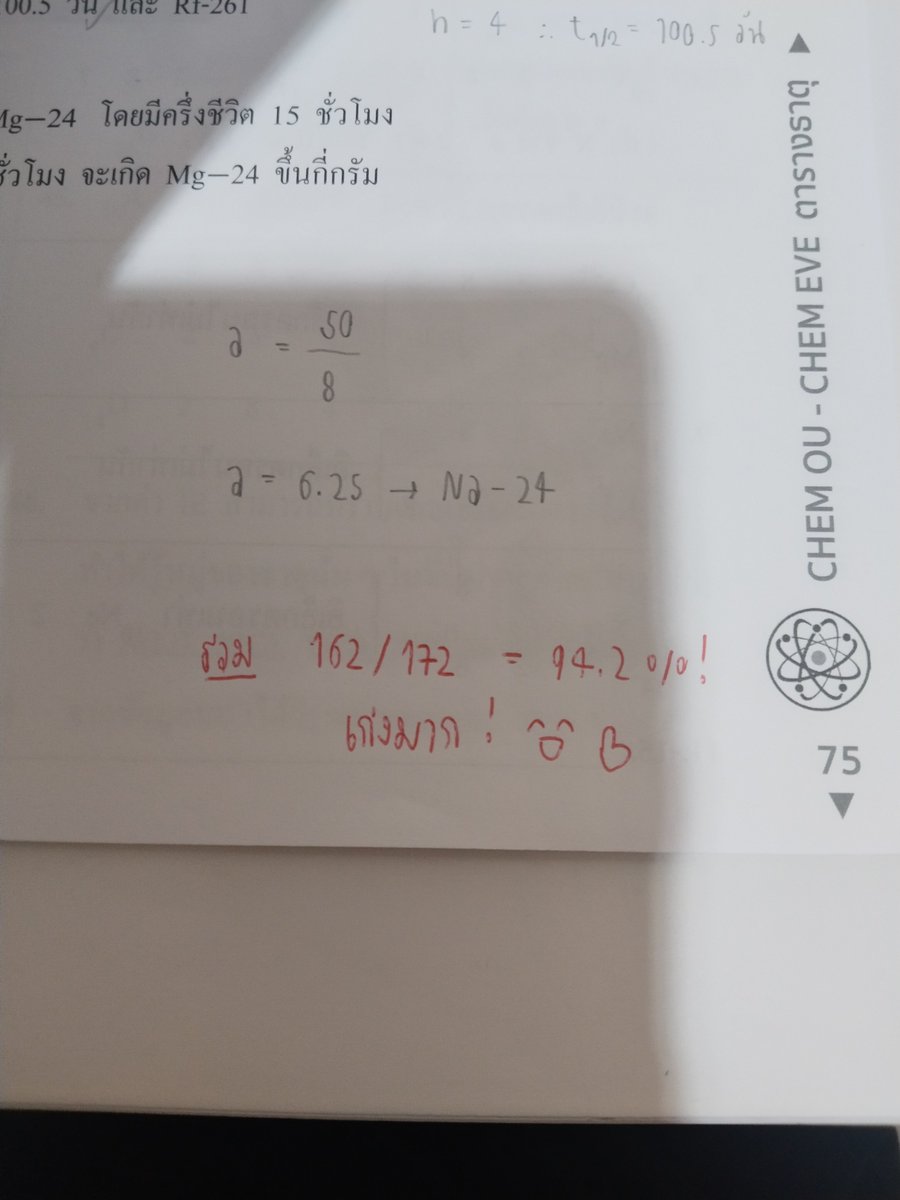 00.5 วัน และ Rf-261
n = 4 ∴ t1/2 = 100.5 วัน
Mg—24 โดยมีครึ่งชีวิต 15 ชั่วโมง
ชั่วโมง จะเกิด Mg—24 ขึ้นกี่กรัม
a = 50/8
a = 6.25 → Na - 24
รวม 162/172 = 94.2 %!
เก่งมาก!
CHEM OU - CHEM EVE ตารางธาตุ
75